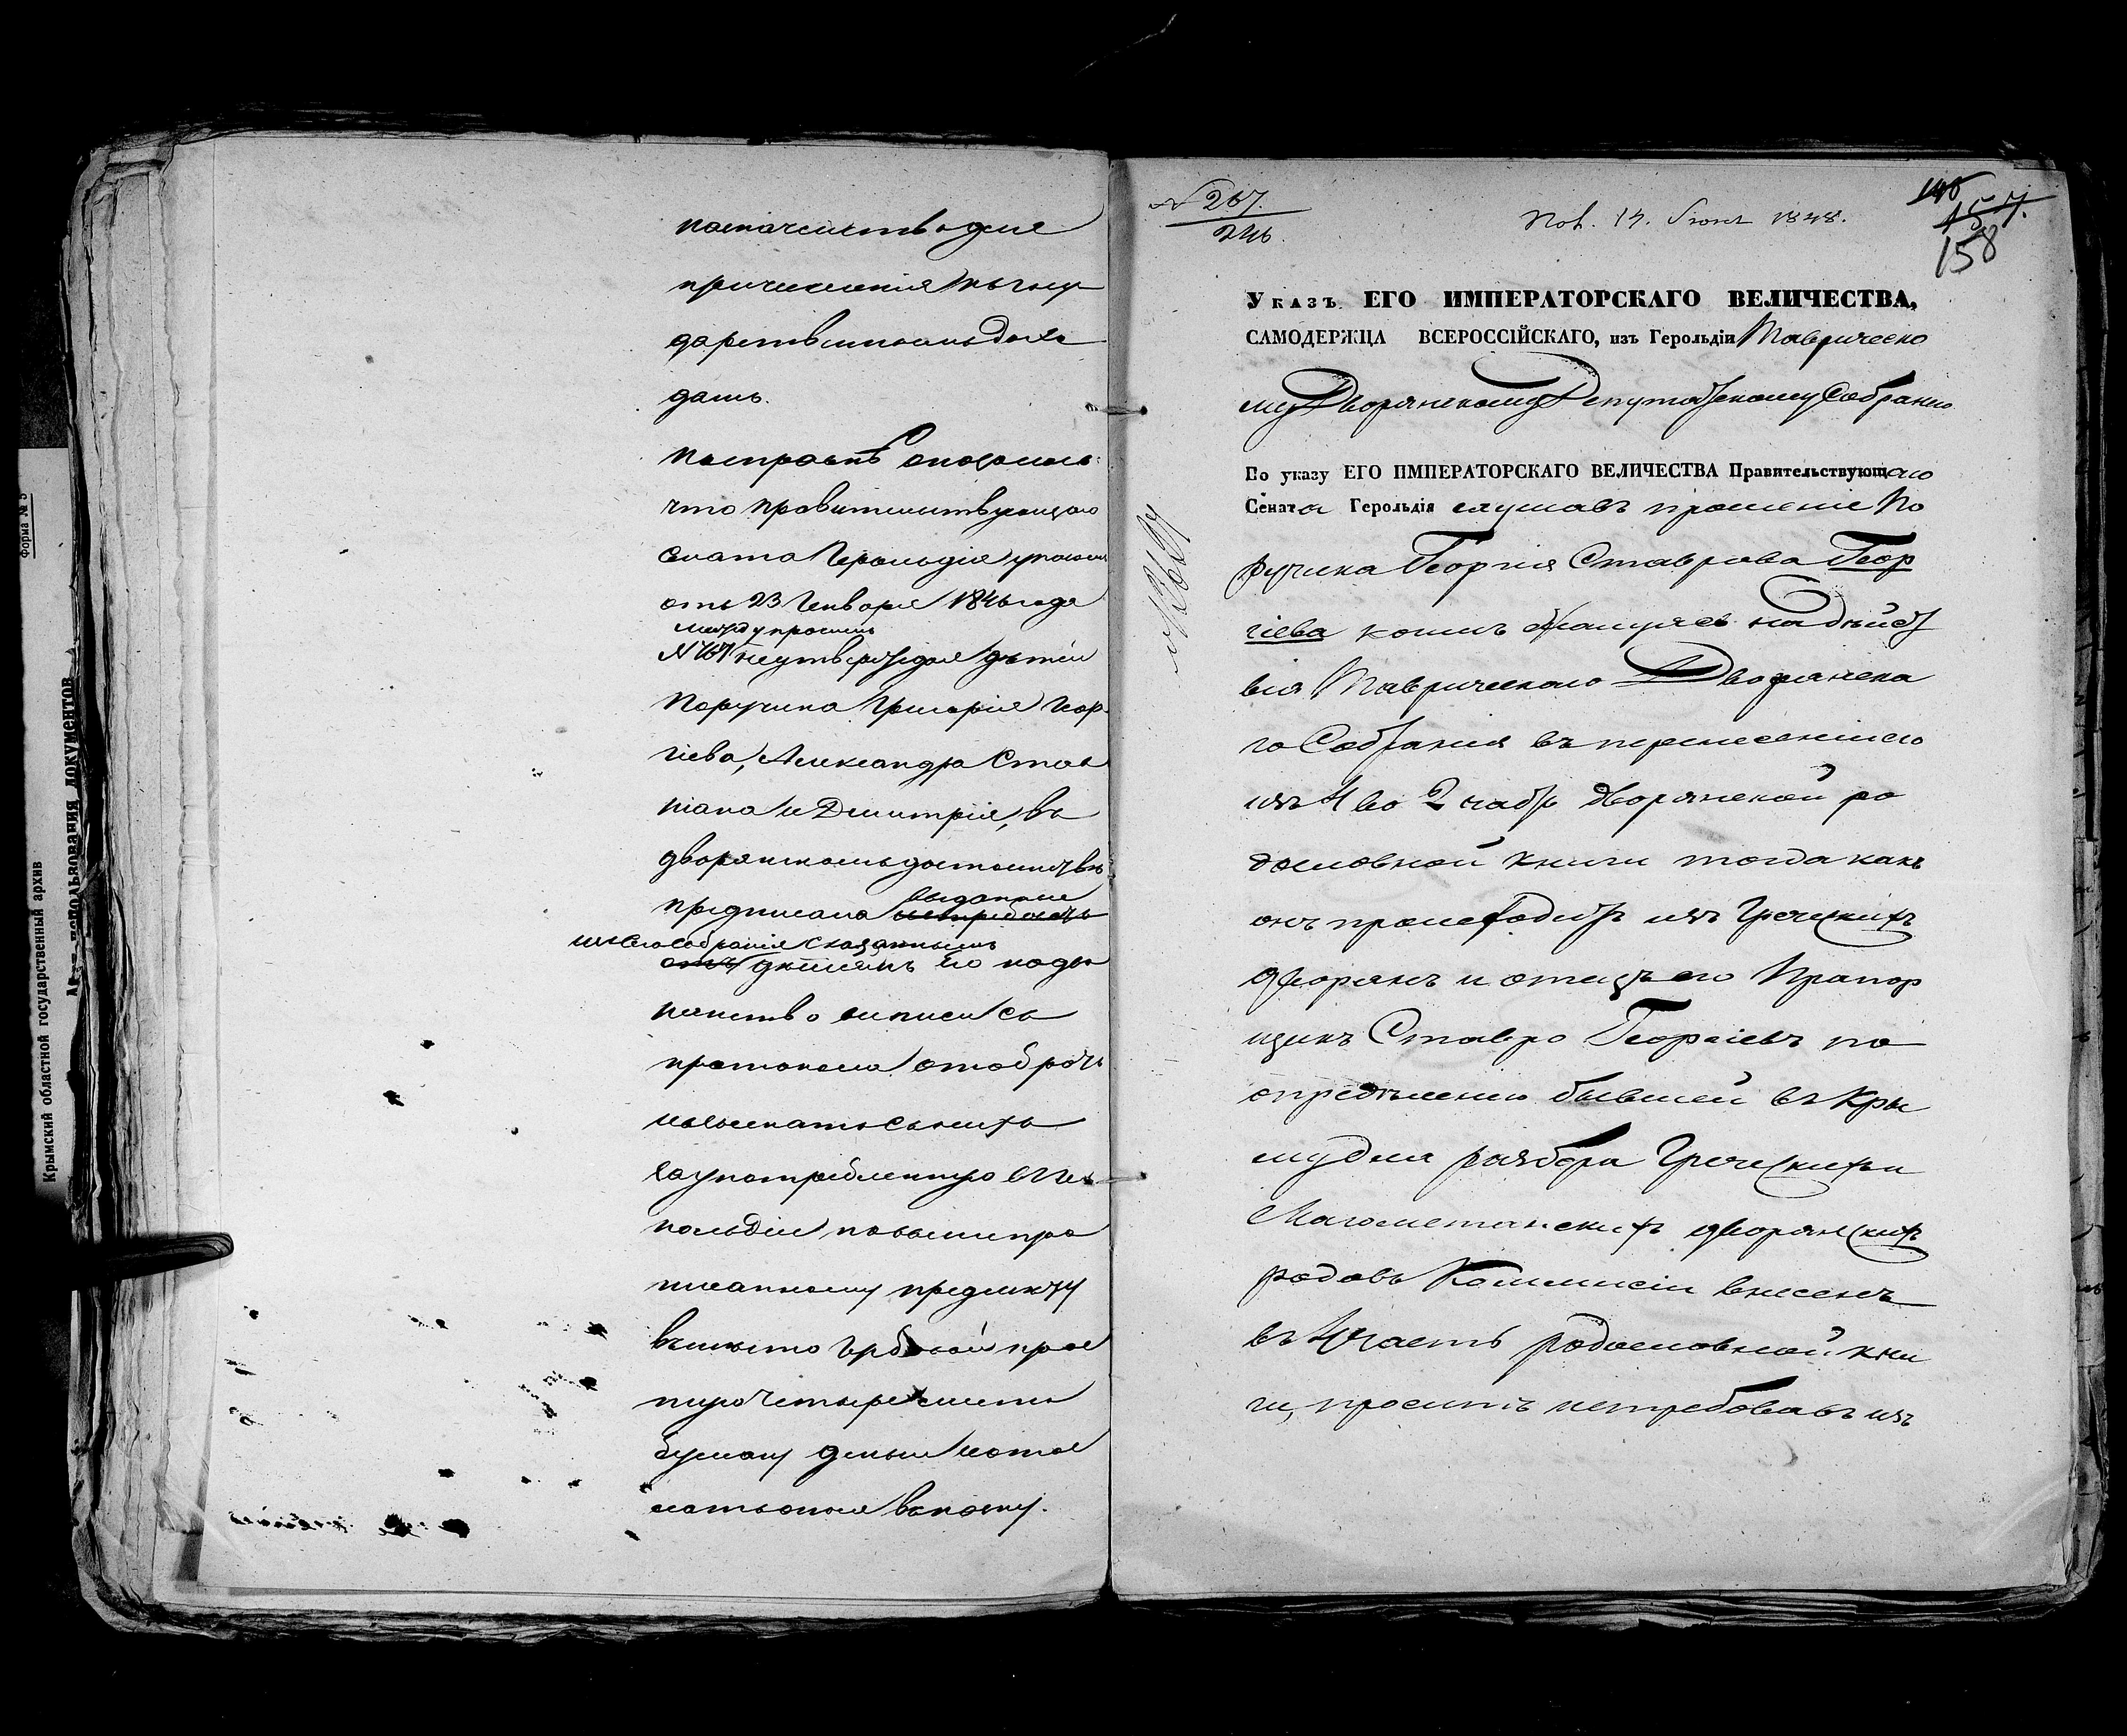 казначейство для
причисления къ госу
дарственнымъ дохо
дамъ.
Настроенъ опредѣлено:
что Правительствующаго
Сената Герольдія указомъ
отъ 23 Генваря 1846 года
между прочимъ
№ 767 неутверждая дѣтей
Поручика Григорія Геор
гіева, Александра Сте
пана и Дмитрія, въ
дворянскомъ достоинствѣ
предписала выданные
изъ сего Собранія сказаннымъ
отъ дѣтямъ его на дво
рянство списки съ
протокола отобрать
взыскать съ нихъ
за употребленную въ Ге
рольдіи по вышепро
писанному предмету
вмѣсто гербовой прос
тую четыре листа
бумагу деньги и отос
лать оныя въ казну.
№ 267.
246.
Пол. 14. Іюня 1848.
146
157.
158
Указъ ЕГО ИМПЕРАТОРСКАГО ВЕЛИЧЕСТВА,
САМОДЕРЖЦА ВСЕРОССІЙСКАГО, изъ Герольдіи Таврическо
му Дворянскому Депутатскому Собранію
По указу ЕГО ИМПЕРАТОРСКАГО ВЕЛИЧЕСТВА Правительствующаго
Сената Герольдія слушавъ прошеніе По
ручика Георгія Ставрова Геор
гіева коимъ жалуясь на дѣйст
вія Таврическаго Дворянска
го Собранія въ перенесеніи его
изъ 4 во 2 часть дворянской ро
дословной книги тогда какъ
онъ происходитъ изъ Греческихъ
дворянъ и отецъ его Прапор
щикъ Ставро Георгіевъ по
опредѣленію бывшей въ Кры
му для разбора Греческихъ и
Магометанскихъ дворянскихъ
родовъ Коммисіи внесенъ
въ 4 часть родословной кни
ги, проситъ истребовавъ изъ
Крымский областной государственный архив
использования документов
Форма № 5